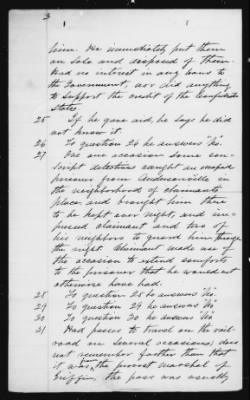 3
him. He immediately put them
on sale and disposed of them.
Had no interest in any loans to
the Government, nor did anything
to support the credit of the Confederate
States.
25 If he gave aid, he says he did
not know it.
26 To question 26 he answers "No."
27 One one occasion some con-
script detectives caught an escaped
prisoner from Andersonville in
the neighborhood of claimants
place and brought him there
to be kept over night, and im-
pressed claimant and two of
his neighbors to guard him through
the night. Claimant made use of
the occasion to extend comforts
to the prisoner that he would not
otherwise have had.
28 To question 28 he answers "No"
29 To question 29 he answers "No"
30 To question 30 he answers "No"
31 Had passes to travel on the rail-
road on several occasions, does
not remember further than that
it was from the provost marshal of
Griffin, the pass was usually